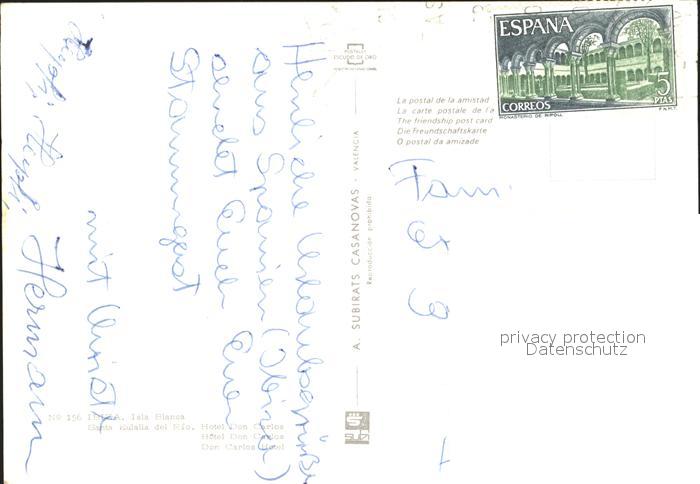 Herzliche Urlaubsgrüße
aus Spanien (Ibiza)
sendet Euch Euer
Stammgast
mit Christl
Hermann
POSTALES
ESCUDO DE ORO
A. SUBIRATS CASANOVAS - VALENCIA
Reproducción prohibida
ESPAÑA
5
PTAS
CORREOS
MONASTERIO DE RIPOLL
F.N.M.T.
La postal de la amistad
La carte postale de l'a
The friendship post card
Die Freundschaftskarte
O postal da amizade
Fam.
privacy protection
Datenschutz
Nº 156 IBIZA. Isla Blanca
Santa Eulalia del Río. Hotel Don Carlos
Hôtel Don Carlos
Don Carlos Hotel